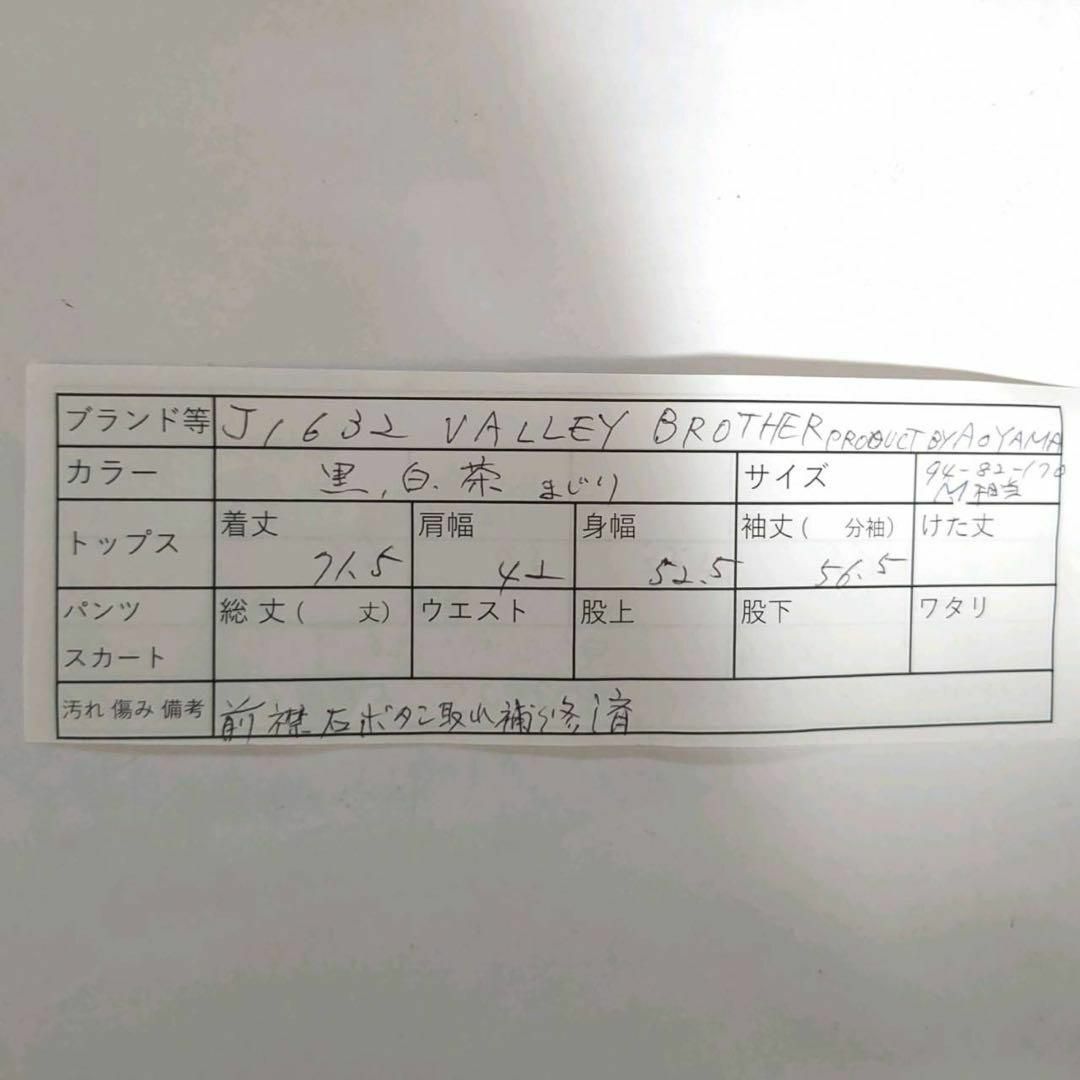 ブランド等 J1632 VALLEY BROTHER PRODUCT BY AOYAMA
カラー 黒、白、茶 まじり サイズ 94-82-170
M相当
トップス 着丈 肩幅 身幅 袖丈( 分袖) けた丈
71.5 42 52.5 56.5
パンツ 総丈( 丈) ウエスト 股上 股下 ワタリ
スカート
汚れ 傷み 備考 前襟右ボタン取れ補修済